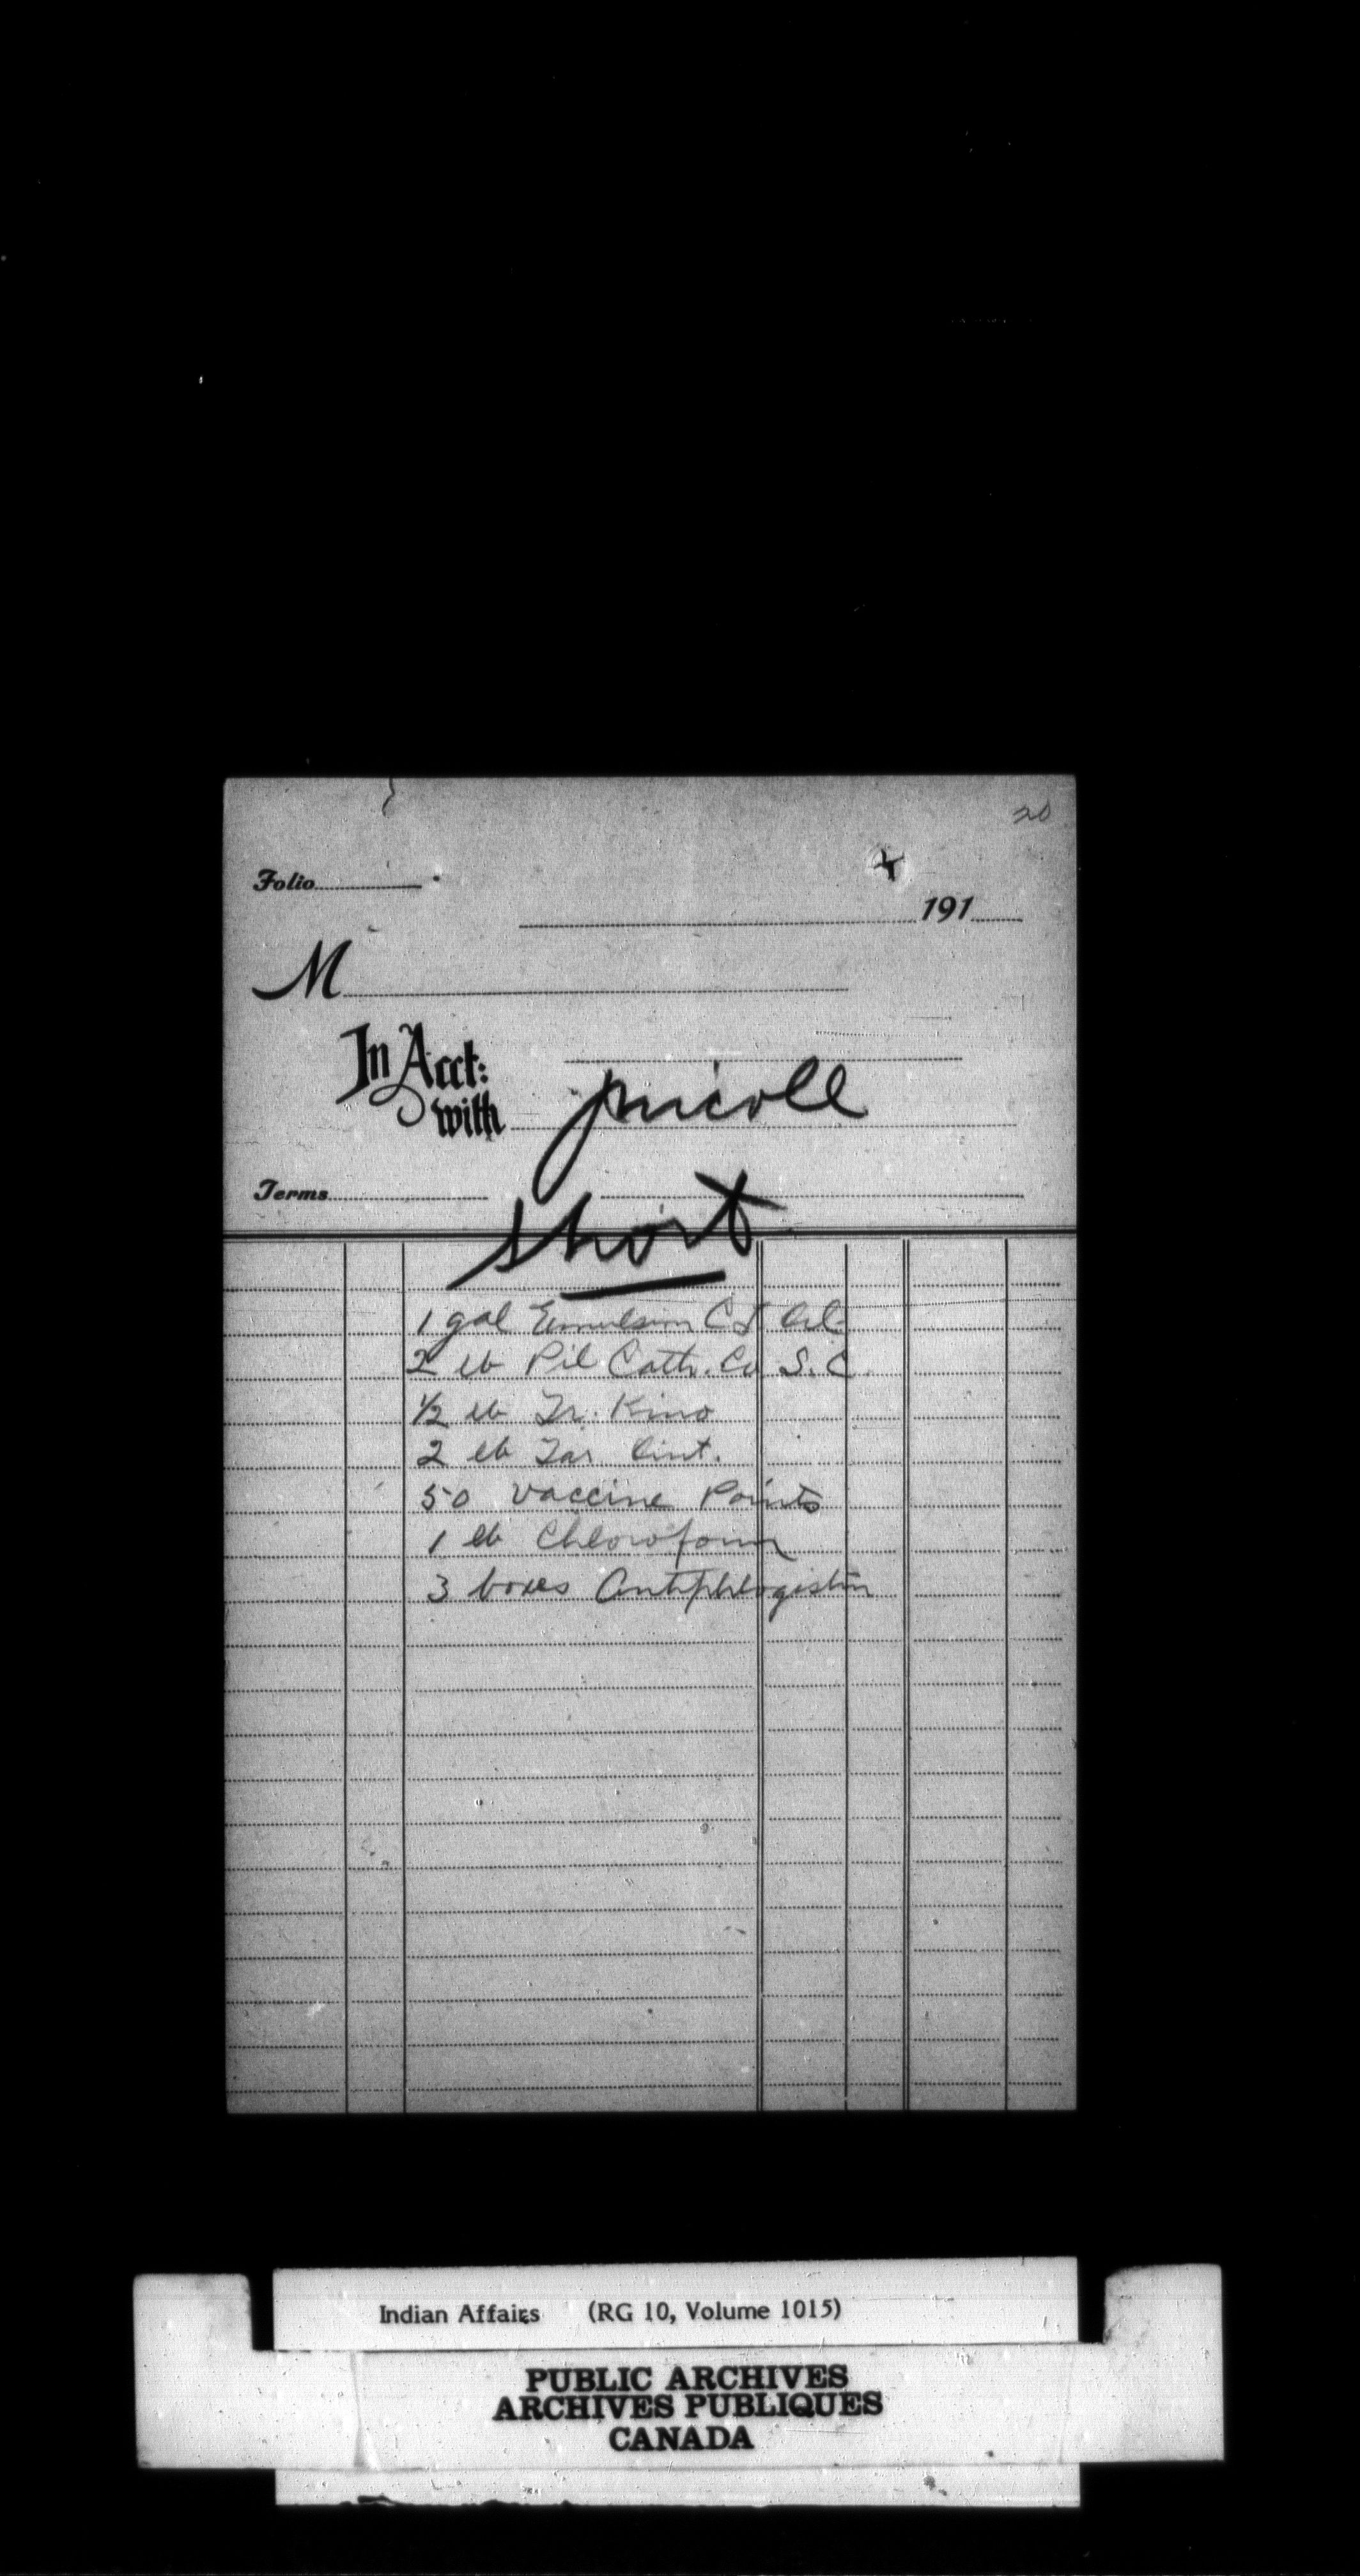 20
Folio
191
M
In Acct: with
Nicoll
Terms
short
1 gal Emulsion C L Oil
2 lb Pil Cath. Co S.C.
1/2 lb Tr. Kino
2 lb Tar Oint.
50 Vaccine Points
1 lb Chloroform
3 boxes Antiphlogistin
Indian Affairs (RG 10, Volume 1015)
PUBLIC ARCHIVES
ARCHIVES PUBLIQUES
CANADA